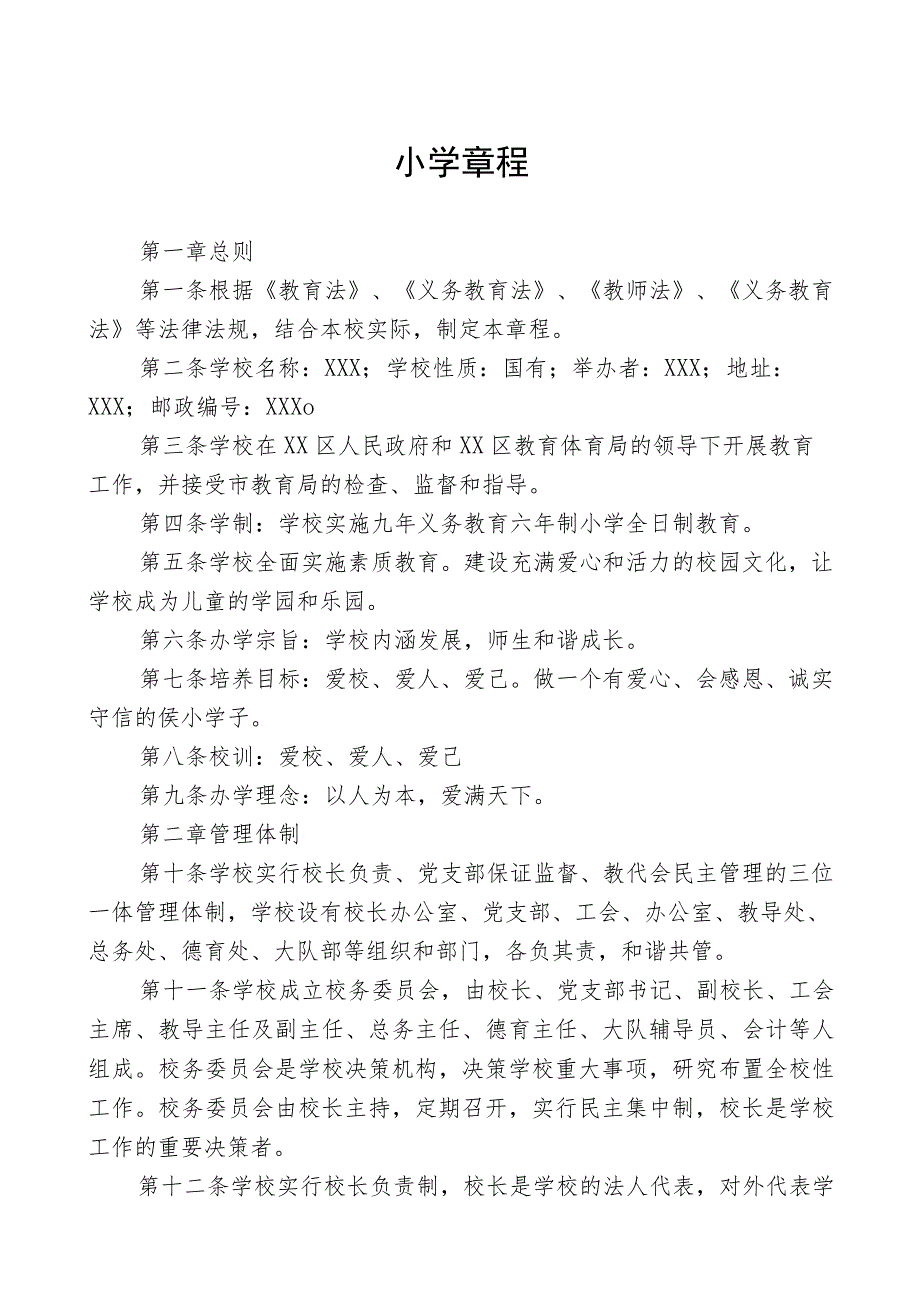 小学章程
第一章总则
第一条根据《教育法》、《义务教育法》、《教师法》、《义务教育
法》等法律法规，结合本校实际，制定本章程。
第二条学校名称：XXX；学校性质：国有；举办者：XXX；地址：
XXX；邮政编号：XXXo
第三条学校在XX区人民政府和XX区教育体育局的领导下开展教育
工作，并接受市教育局的检查、监督和指导。
第四条学制：学校实施九年义务教育六年制小学全日制教育。
第五条学校全面实施素质教育。建设充满爱心和活力的校园文化，让
学校成为儿童的学园和乐园。
第六条办学宗旨：学校内涵发展，师生和谐成长。
第七条培养目标：爱校、爱人、爱己。做一个有爱心、会感恩、诚实
守信的侯小学子。
第八条校训：爱校、爱人、爱己
第九条办学理念：以人为本，爱满天下。
第二章管理体制
第十条学校实行校长负责、党支部保证监督、教代会民主管理的三位
一体管理体制，学校设有校长办公室、党支部、工会、办公室、教导处、
总务处、德育处、大队部等组织和部门，各负其责，和谐共管。
第十一条学校成立校务委员会，由校长、党支部书记、副校长、工会
主席、教导主任及副主任、总务主任、德育主任、大队辅导员、会计等人
组成。校务委员会是学校决策机构，决策学校重大事项，研究布置全校性
工作。校务委员会由校长主持，定期召开，实行民主集中制，校长是学校
工作的重要决策者。
第十二条学校实行校长负责制，校长是学校的法人代表，对外代表学